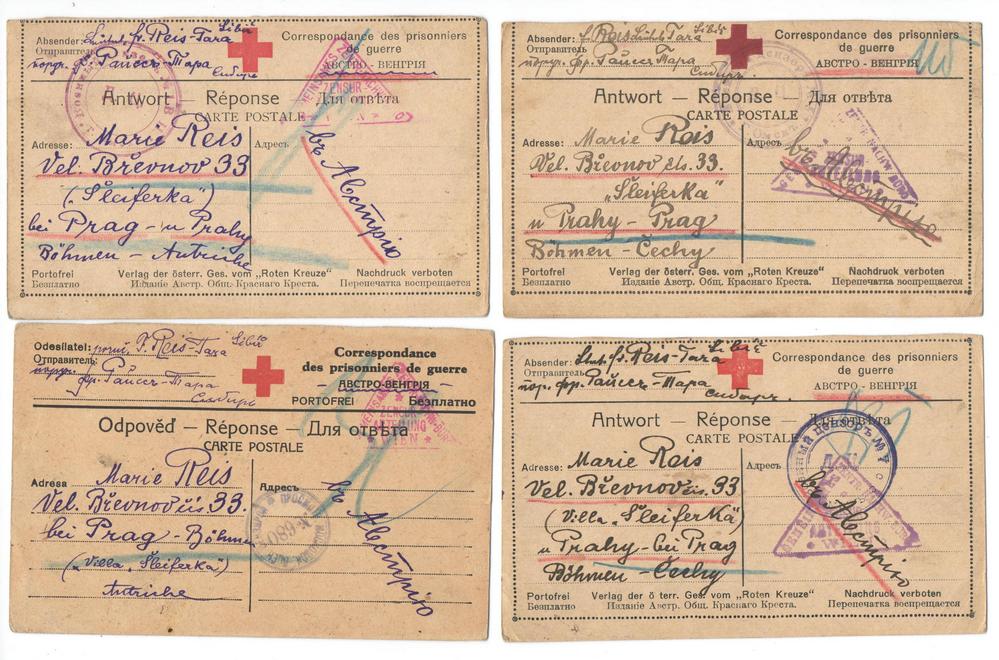 Absender: Lieut. fr. Reis-Tara Sibiř
Отправитель:
пору. фр. Райсъ-Тара
Сибирь
Correspondance des prisonniers
de guerre
АВСТРО-ВЕНГРІЯ
ZENSUR
Antwort — Réponse — Для отвѣта
CARTE POSTALE
Adresse: Marie Reis
Адресъ
Vel. Břevnov 33
(„Šleiferka")
bei Prag - u Prahy
Böhmen - Autriche
въ Австрію
Portofrei
Безплатно
Verlag der österr. Ges. vom „Roten Kreuze"
Изданіе Австр. Общ. Краснаго Креста.
Nachdruck verboten
Перепечатка воспрещается
Absender: Reis Tara Sibiř
Отправитель
фр. Райсъ-Тара
Сибирь.
Correspondance des prisonniers
de guerre
АВСТРО - ВЕНГРІЯ
Antwort — Réponse — Для отвѣта
CARTE POSTALE
Adresse: Marie Reis
Адресъ
Vel. Břevnov čs. 33.
„Šleiferka"
u Prahy - Prag
Böhmen - Čechy
въ Австрію
Portofrei
Безплатно
Verlag der österr. Ges. vom „Roten Kreuze"
Изданіе Австр. Общ. Краснаго Креста.
Nachdruck verboten
Перепечатка воспрещается
Odesílatel: poruč. F. Reis-Tara Sibiř
Отправитель:
фр. Райсъ-Тара
Сибирь
Correspondance
des prisonniers de guerre
АВСТРО-ВЕНГРІЯ
PORTOFREI Безплатно
ZENSUR
ABTEILUNG
WIEN
Odpověď - Réponse - Для отвѣта
CARTE POSTALE
Adresa Marie Reis
Адресъ
Vel. Břevnov čís. 33
bei Prag - Böhmen
(„Villa „Šleiferka")
Autriche
въ Австрію
Absender: fr. Reis-Tara Sibiř
Отправитель:
пор. фр. Райсъ-Тара
Сибирь.
Correspondance des prisonniers
de guerre
АВСТРО - ВЕНГРІЯ
Antwort — Réponse — Для отвѣта
CARTE POSTALE
Adresse: Marie Reis
Адресъ
Vel. Břevnov čís. 33
(Villa „Šleiferka")
u Prahy - bei Prag
Böhmen - Čechy
въ Австрію
Portofrei
Безплатно
Verlag der ö terr. Ges. vom „Roten Kreuze"
Изданіе Австр. Общ. Краснаго Креста.
Nachdruck verboten
Перепечатка воспрещается